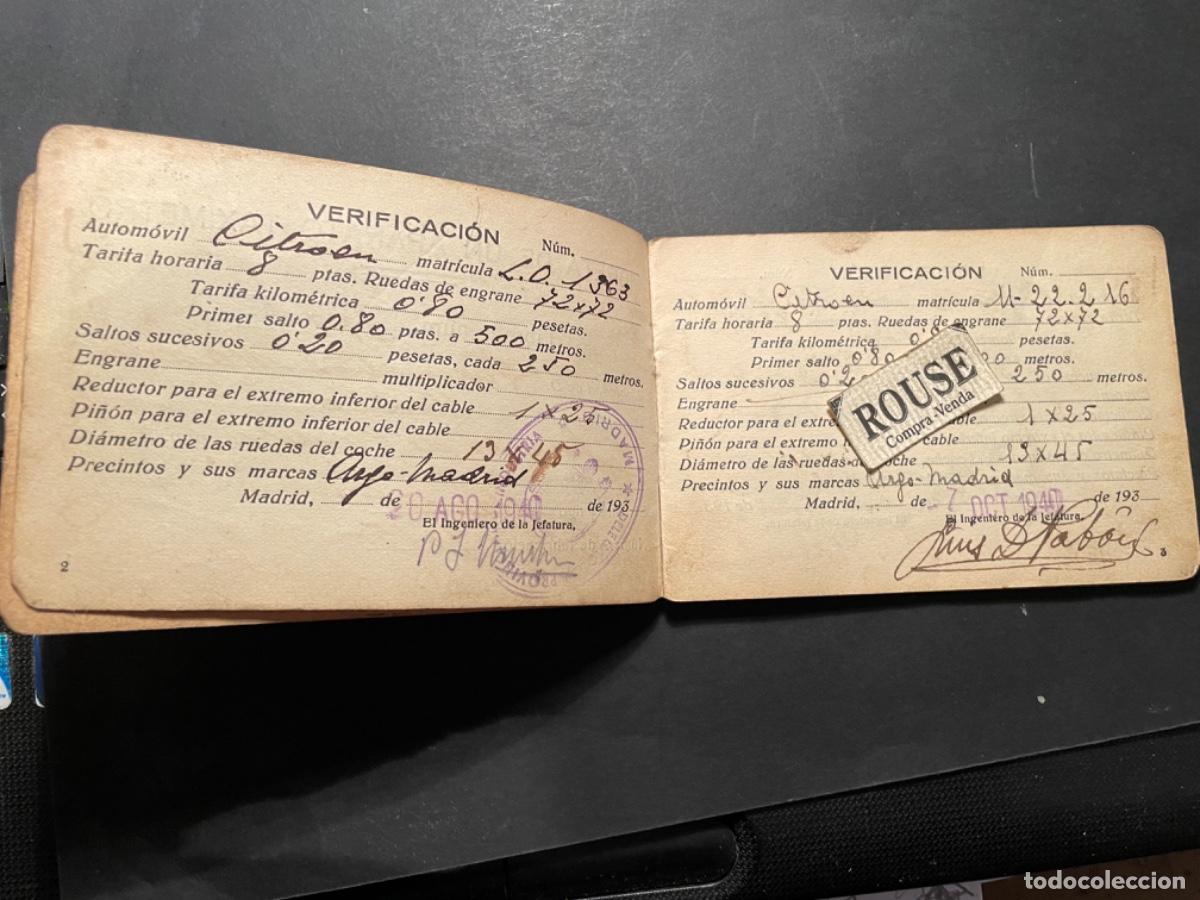 VERIFICACIÓN
Núm.
Automóvil Citroen matrícula L.O. 1363
Tarifa horaria 8 ptas. Ruedas de engrane 72x72
Tarifa kilométrica 0'80 pesetas.
Primer salto 0.80 ptas. a 500 metros.
Saltos sucesivos 0'20 pesetas, cada 250 metros.
Engrane multiplicador
Reductor para el extremo inferior del cable 1 x 25
Piñón para el extremo inferior del cable
Diámetro de las ruedas del coche 13 x 45
Precintos y sus marcas Argo-Madrid
Madrid, de 20 AGO. 1940 de 193
El Ingeniero de la Jefatura,
MADRID
2
VERIFICACIÓN
Núm.
Automóvil Citroen matrícula M-22.216
Tarifa horaria 8 ptas. Ruedas de engrane 72x72
Tarifa kilométrica pesetas.
Primer salto 0'80 metros.
Saltos sucesivos 250 metros.
Engrane
Reductor para el extremo cable 1 x 25
Piñón para el extremo cable
Diámetro de las ruedas coche 13 x 45
Precintos y sus marcas Argo-Madrid
Madrid, de -7 OCT 1940 de 193
El Ingeniero de la Jefatura,
3
ROUSE
Compra-Venda
todocoleccion